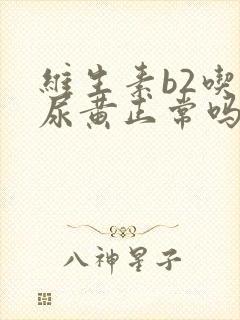 維生素b2喫
尿黄正常吗
八神星子